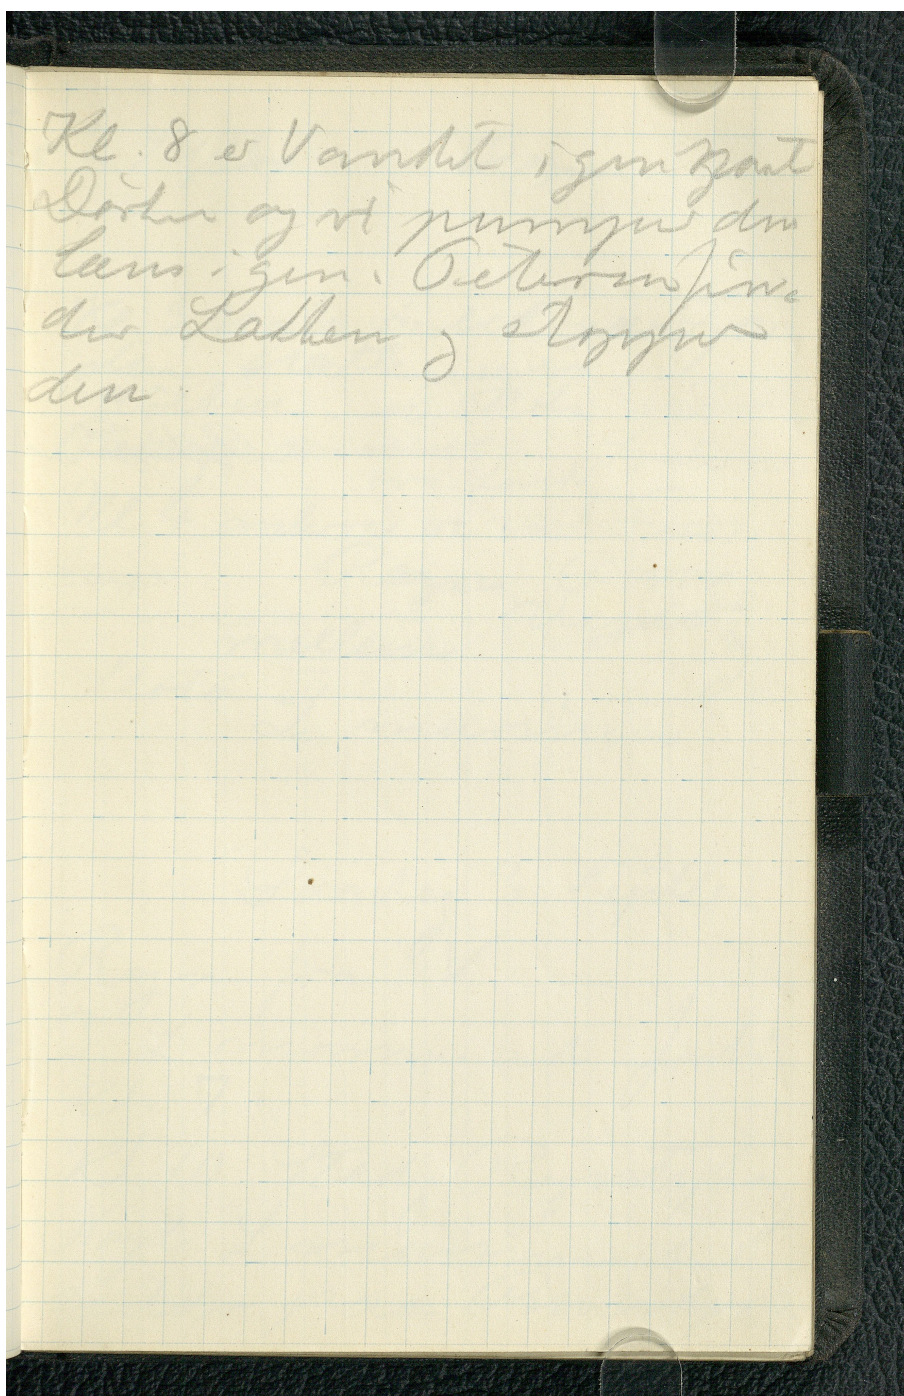 Kl. 8 er Vandet igen paa
Dörken og vi pumper den
læns igen. Petersen fin-
der Lækken og stopper
den